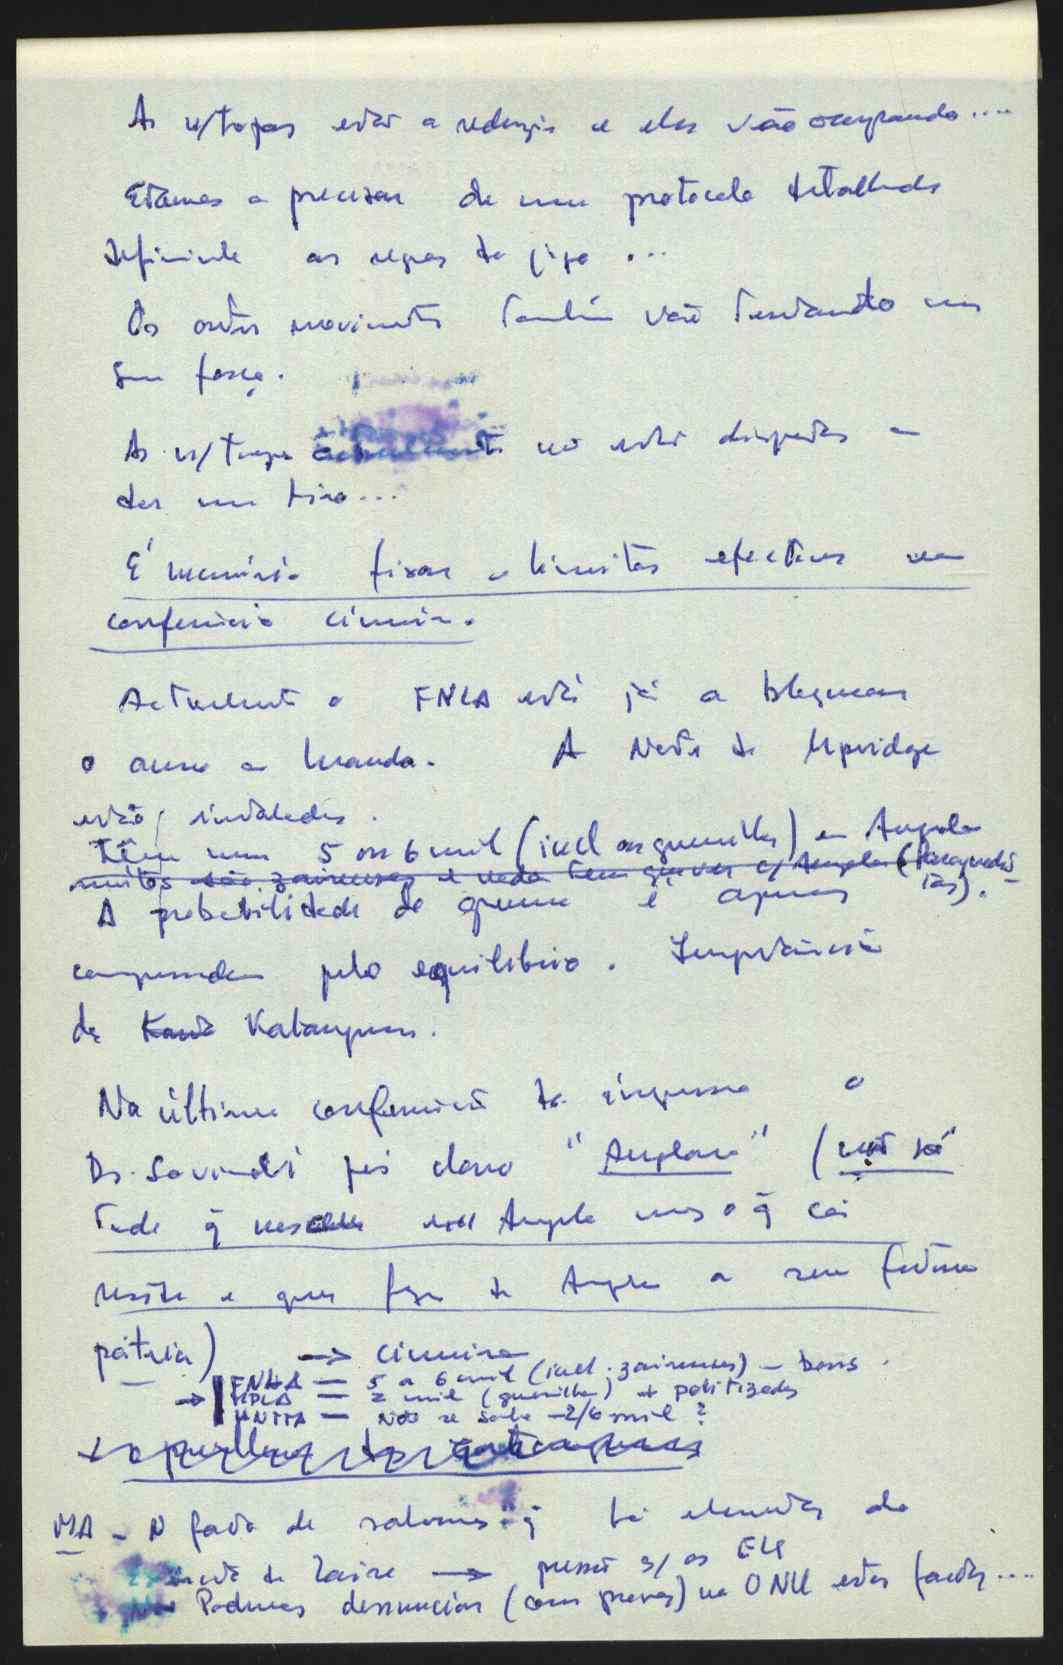 As n/tropas estão a redução e eles vão ocupando....
Estamos a precisar de um protocolo detalhado
definindo as regras do jogo ...
Os outros movimentos também vão tentando
sua força.
As n/tropas não estão dispostas a
dar um tiro...
É necessário fixar limites efectivos na
conferência cimeira.
Actualmente a FNLA está já a bloquear
o acesso a Luanda. A Norte de
estão instalados.
Têm uns 5 ou 6 mil (incl as guerrilhas) em Angola
muitos são zairenses e nada têm que ver c/ Angola
A probabilidade de guerra é apenas
compensada pelo equilíbrio. Importância
de Katangueses.
Na última conferência de imprensa o
Dr. Savimbi pôs claro "Angolano" (não só
tudo q nasceu em Angola mas o q cá
reside e quer fazer de Angola a sua futura
pátria) → cimeira
→ FNLA — 5 a 6 mil (incl. zairenses) — bons.
MPLA — 2 mil (guerrilha) + politizados
UNITA — Não se sabe — 2/6 mil?
MA - O facto de sabermos q há elementos do
do Zaire → pressão s/ os EU
Podemos denunciar (com provas) na ONU estes factos....